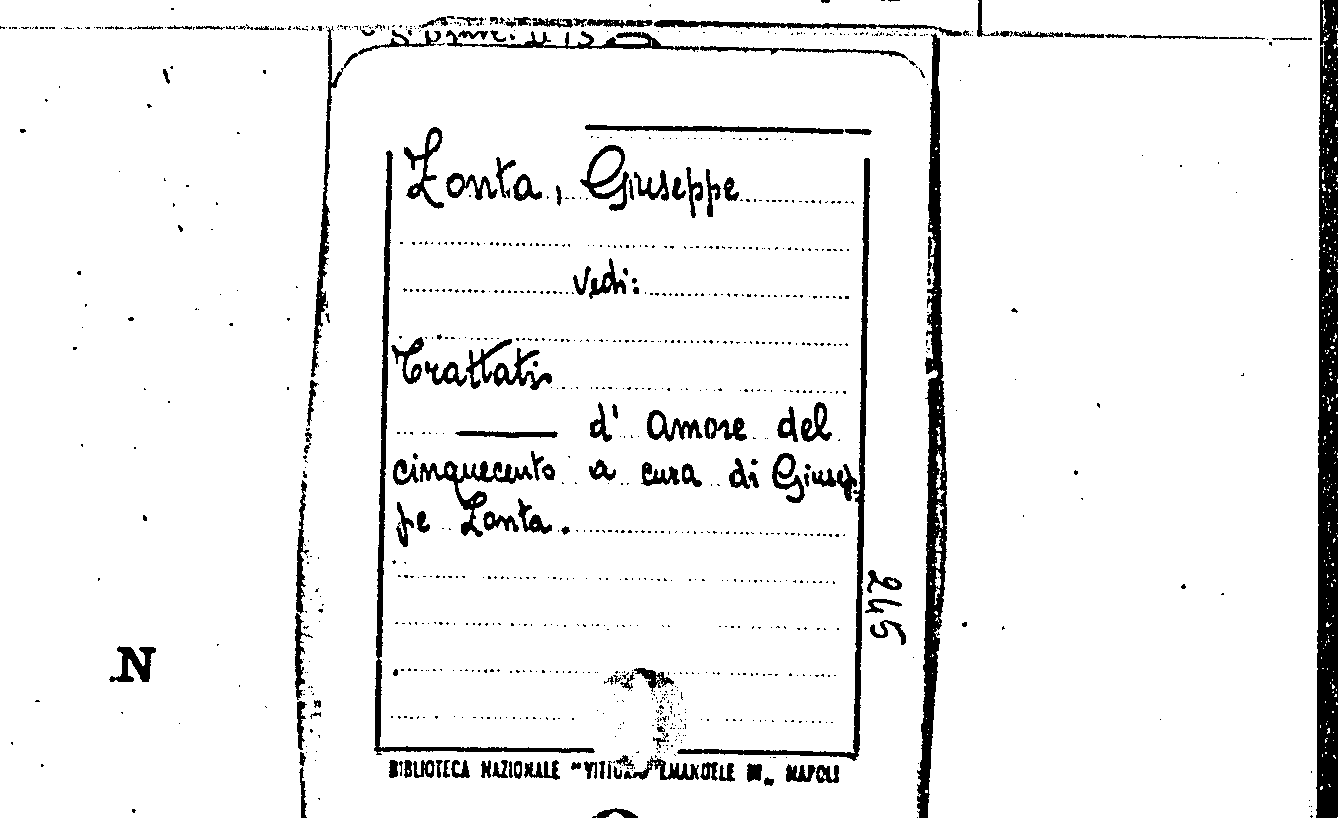 Zonta, Giuseppe
Vedi:
Trattati
——— d' Amore del
cinquecento a cura di Giusep-
pe Zonta.
245
N
BIBLIOTECA NAZIONALE "VITTORIO EMANUELE III„ NAPOLI